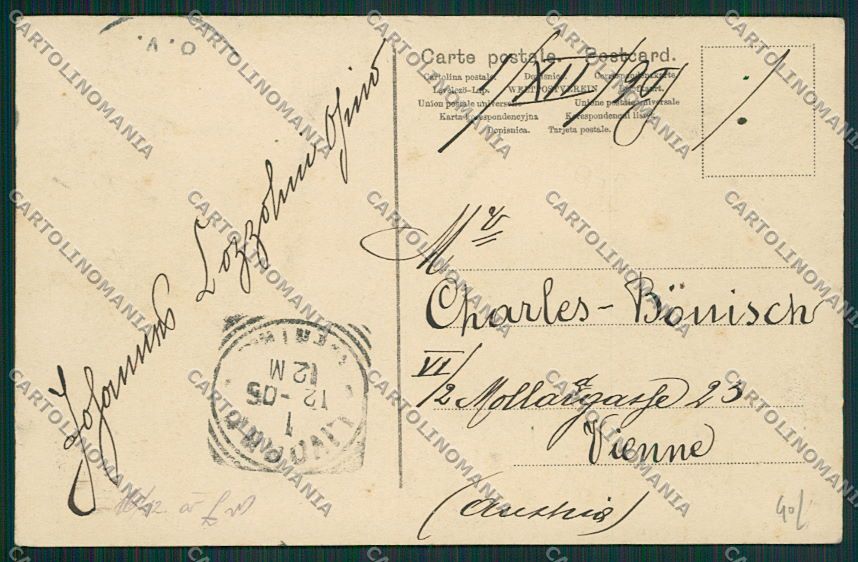 O.V.
Carte postale. Postcard.
Cartolina postale. Dopisnice. Correspondenzkarte
Levelező-Lap. WELTPOSTVEREIN
Union postale universelle Unione postale universale
Karta korespondencyjna Korespondencni listek.
Dopisnica. Tarjeta postale.
1/XII/05
Mr
Charles-Bönisch
VI/2 Mollardgasse 23
Vienne
(Austria)
Johannes
LIVORNO
1
12-05
12 M
40/
CARTOLINOMANIA